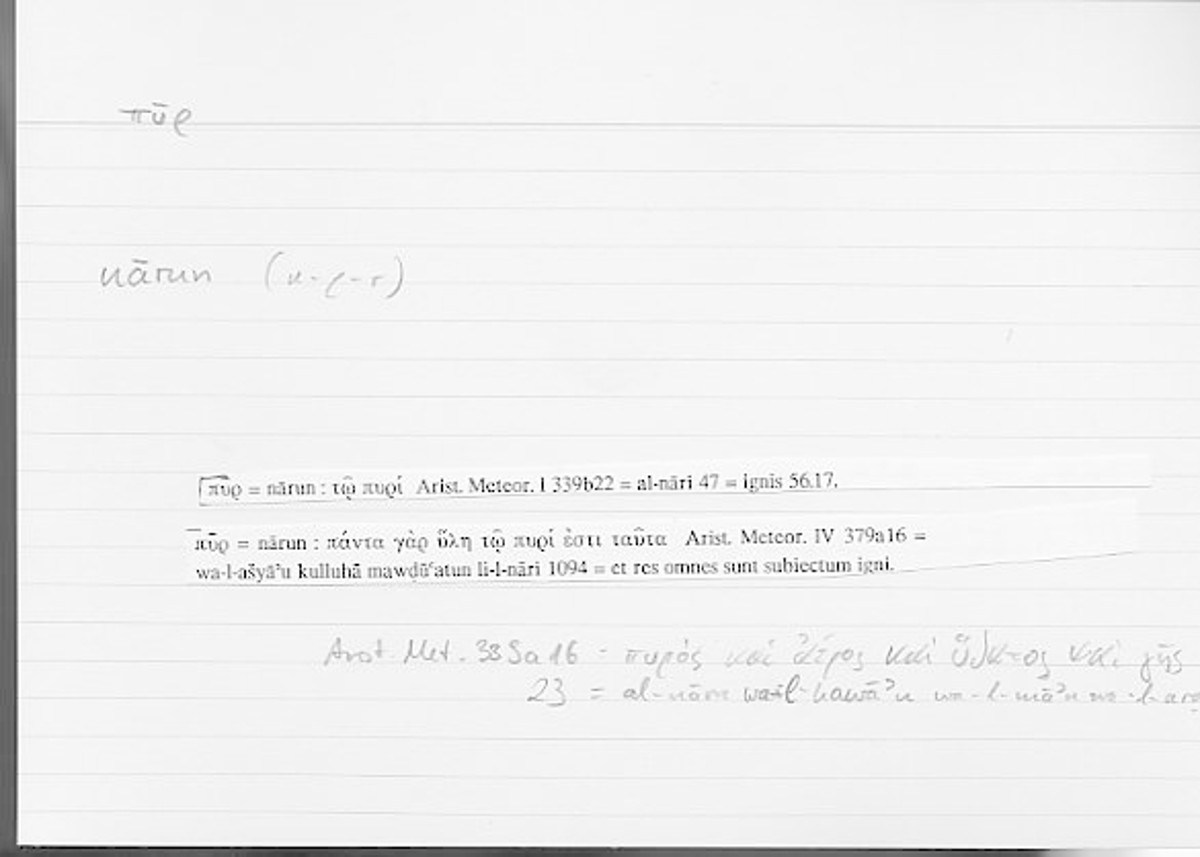 πῦρ
nārun (n-r-r)
πῦρ = nārun : τῷ πυρί Arist. Meteor. I 339b22 = al-nāri 47 = ignis 56.17.
πῦρ = nārun : πάντα γὰρ ὕλη τῷ πυρί ἐστι ταῦτα Arist. Meteor. IV 379a16 =
wa-l-ašyāʾu kulluhā mawḍūʿatun li-l-nāri 1094 = et res omnes sunt subiectum igni.
Arist. Met. 16 πυρὸς καὶ ἀέρος καὶ ὕδατος καὶ γῆς
23 = wa-l-hawāʾu wa-l-māʾu